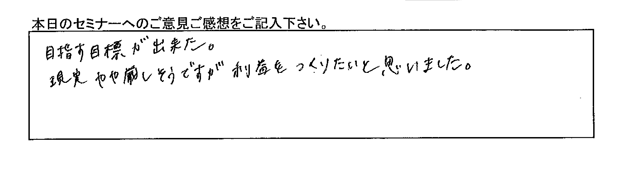 本日のセミナーへのご意見ご感想をご記入下さい。
目指す目標が出来た。
現実やや厳しそうですが利益をつくりたいと思いました。